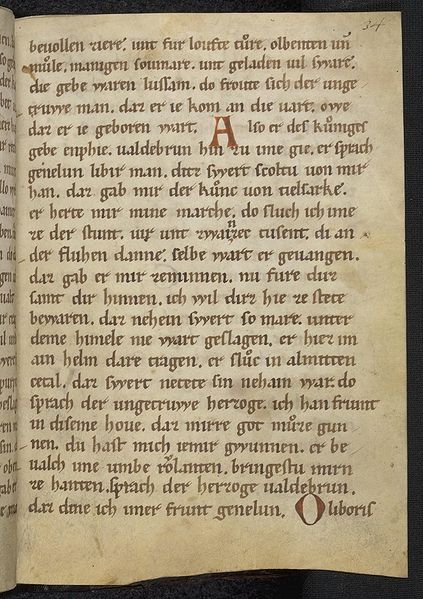 34
bevollen ziere. unt fur loufte tu͛re. olbenten un̄
mu͛le. manigen soumare. unt geladen uil svvare.
die gebe vvaren lussam. do froute sich der unge
truvve man. daz er ie kom an die uart. ovve
daz er ie geboren vvart. Also er des ku͛niges
gebe enphie. ualdebrun hin zu ime gie. er sprach
genelun libir man. ditz svvert scoltu von mir
han. daz gab mir der ku͛nc von
er herte mir mine marche. do sluch ich ime
ze der stunt. uir unt zvvainzec tusent. di an
der fluhen danne. selbe vvart er geuangen.
daz gab er mir zeminnen. nu fure duz
samt dir hinnen. ich vvil dirz hie ze stete
bevvaren. daz nehein svvert so mare. unter
deme himele nie vvart geslagen. er hiez im
ain helm dare tragen. er slu͛c in almitten
zetal. daz svvert netete sin nehain vvar. do
sprach der ungetruvve herzoge. ich han friunt
in diseme houe. daz mirre got mu͛ze gun
nen. du hast mich iemir gvvunnen. er be
ualch ime umbe ro͛lanten. bringestu mirn
ze hanten. sprach der herzoge ualdebrun.
daz dene ich imer friunt genelun. Oliboris